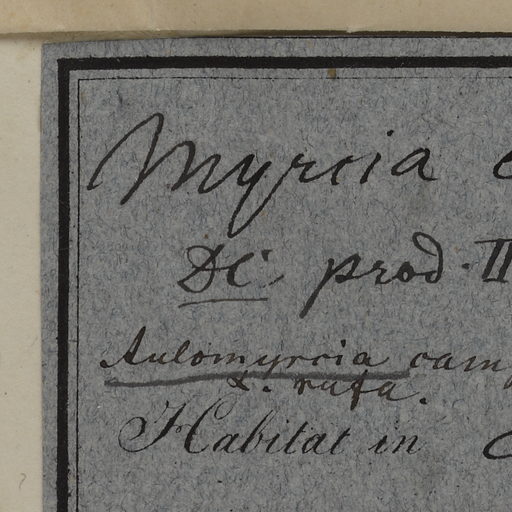 Myrcia
DC. prod. II
Aulomyrcia cam
α. rufa.
Habitat in